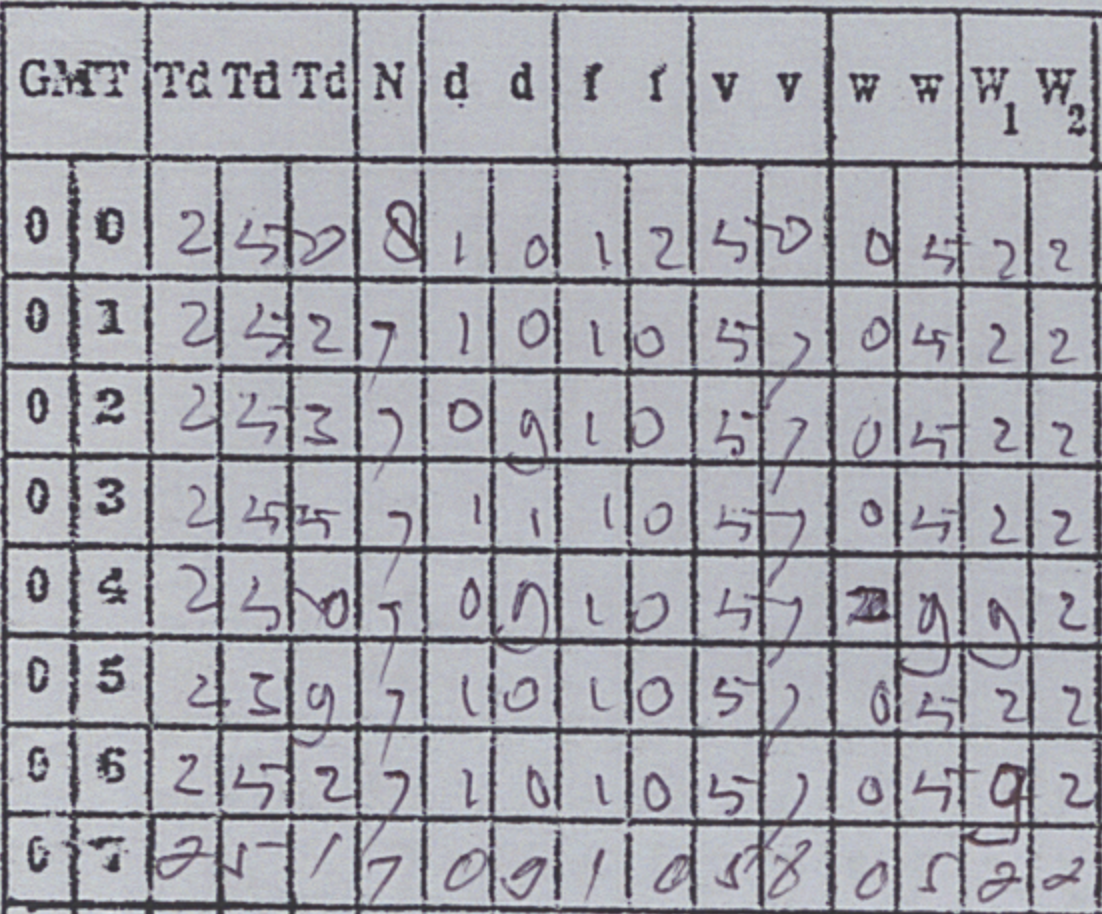 GMT Td Td Td N d d f f v v w w W1 W2
0 0 2 5 0 8 1 0 1 2 5 0 0 5 2 2
0 1 2 5 2 7 1 0 1 0 5 7 0 5 2 2
0 2 2 5 3 7 0 9 1 0 5 7 0 5 2 2
0 3 2 5 5 7 1 1 1 0 5 7 0 5 2 2
0 4 2 5 0 7 0 9 1 0 5 7 9 9 2
0 5 2 3 9 7 1 0 1 0 5 7 0 5 2 2
0 6 2 5 2 7 1 0 1 0 5 7 0 5 9 2
0 7 2 5 1 7 0 9 1 0 5 8 0 5 2 2